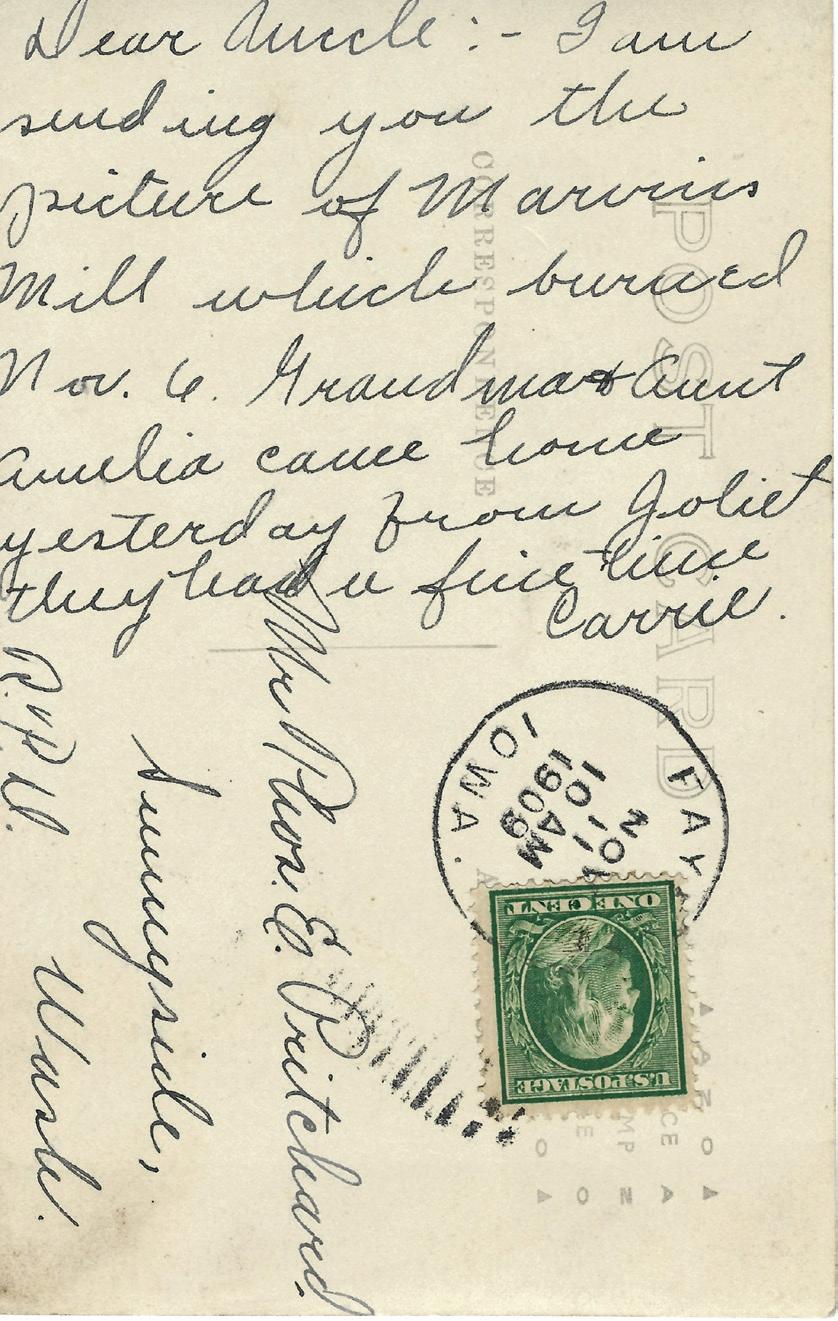 Dear Uncle:- I am
sending you the
picture of Marvins
Mill which burned
Nov. 6. Grandma & Aunt
Amelia came home
yesterday from Joliet
they had a fine time
Carrie.
POST CARD
CORRESPONDENCE
Mr Thos. E. Pritchard.
Sunnyside,
Wash.
IOWA.
NOV
10
AM
1909
U.S. POSTAGE
ONE CENT